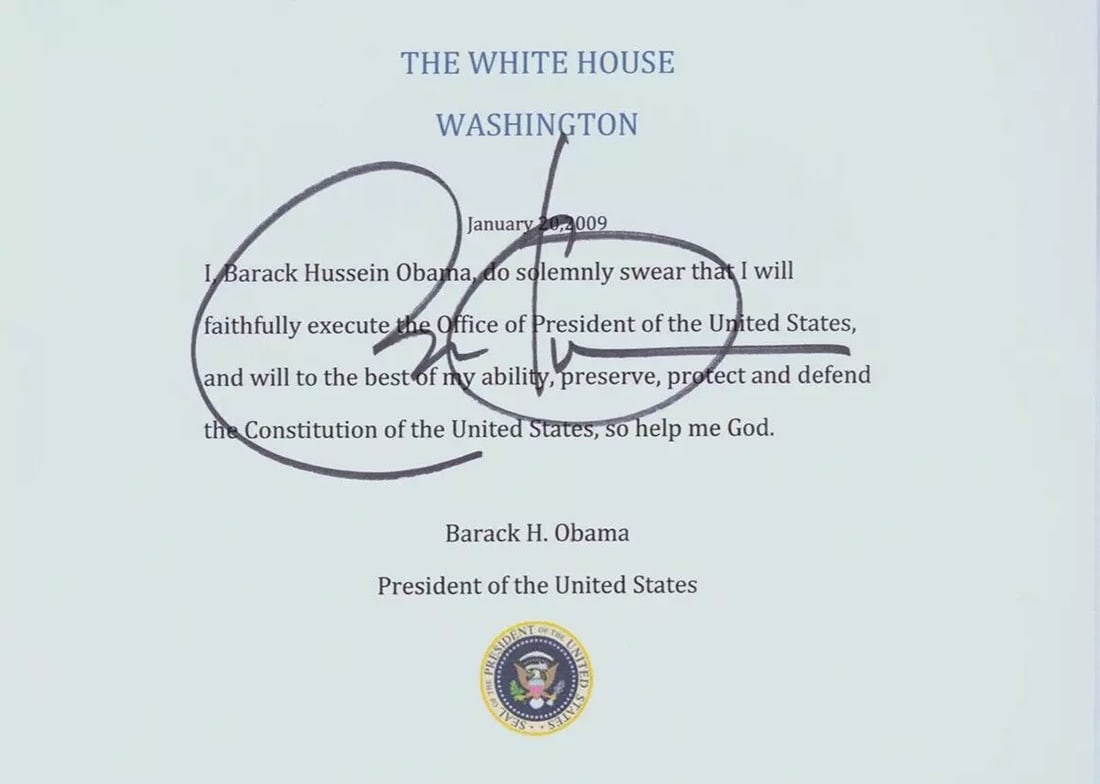 THE WHITE HOUSE
WASHINGTON
January 20,2009
I, Barack Hussein Obama, do solemnly swear that I will
faithfully execute the Office of President of the United States,
and will to the best of my ability, preserve, protect and defend
the Constitution of the United States, so help me God.
Barack H. Obama
President of the United States
SEAL OF THE PRESIDENT OF THE UNITED STATES